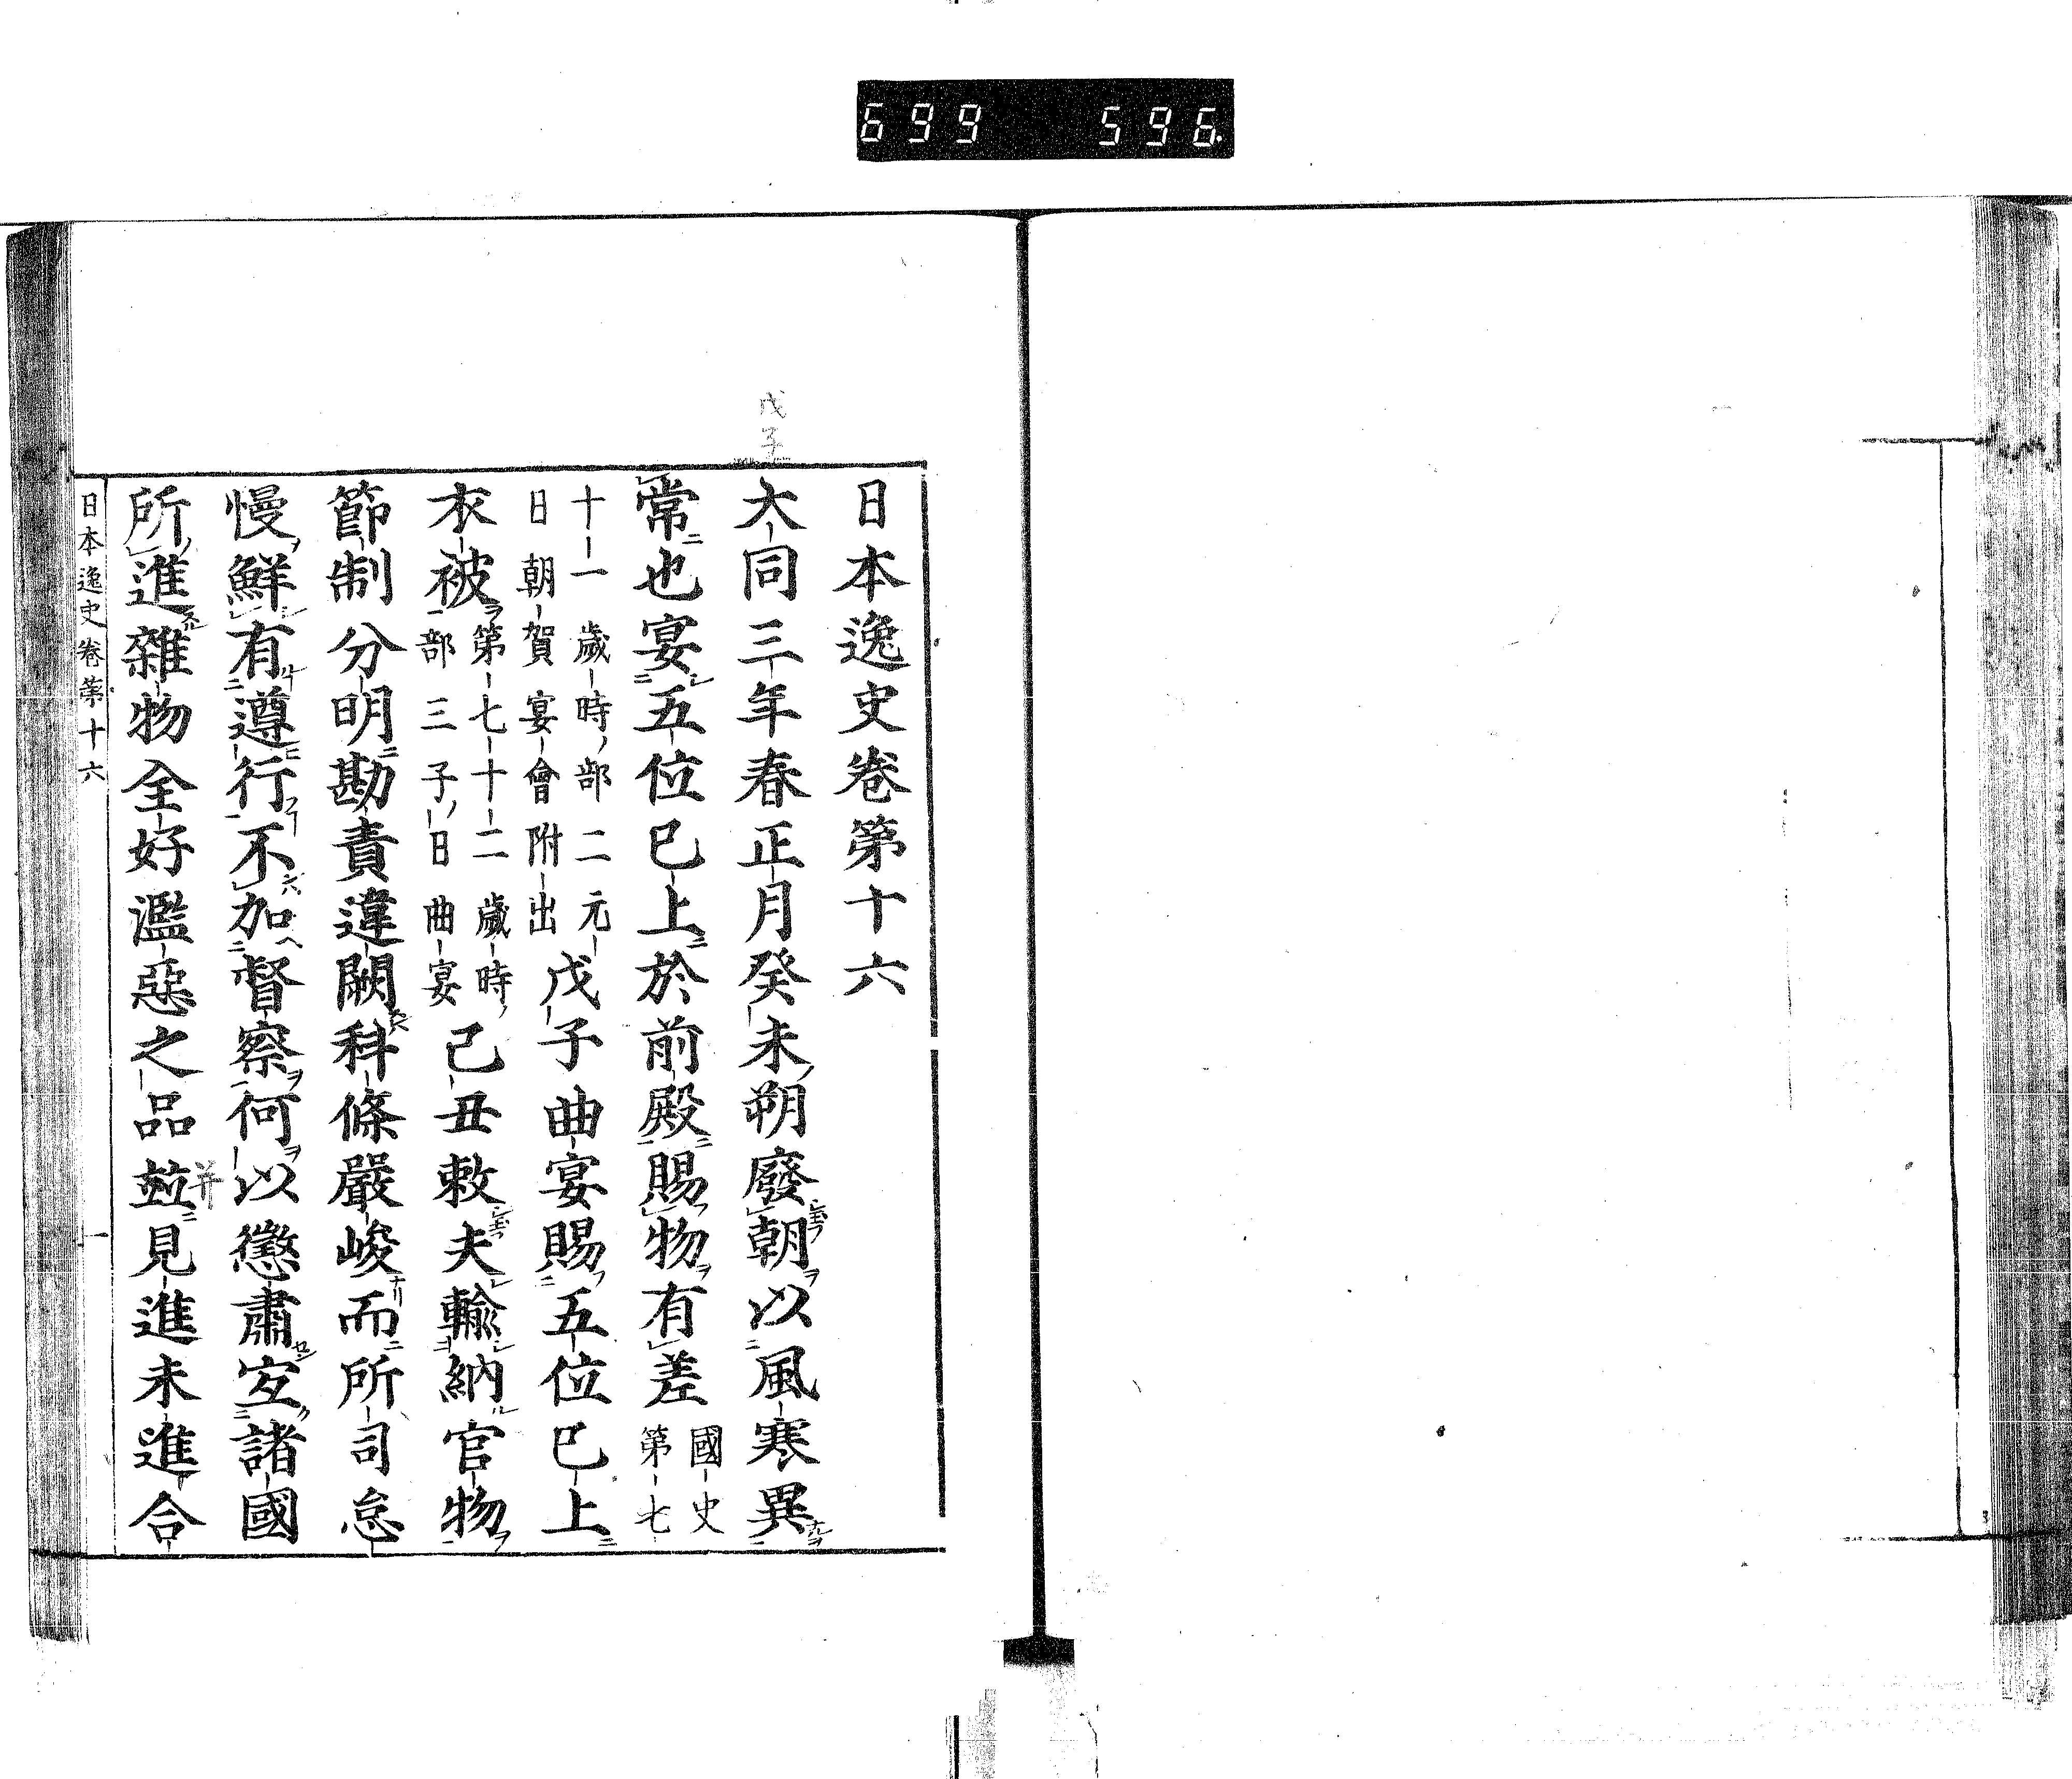 699 596
戊子
日本逸史卷第十六
大同三年春正月癸未朔廢朝以風寒異
常也宴五位已上於前殿賜物有差國史
第七
十一歲時部二元
日朝賀宴會附出戊子曲宴賜五位已上
衣被第七十二歲時
部三子日曲宴己丑敕夫輸納官物
節制分明勘責違闕科條嚴峻而所司怠
慢鮮有遵行不加督察何以懲肅宐諸國
所進雜物全好濫惡之品並見進未進合
日本逸史卷第十六 一